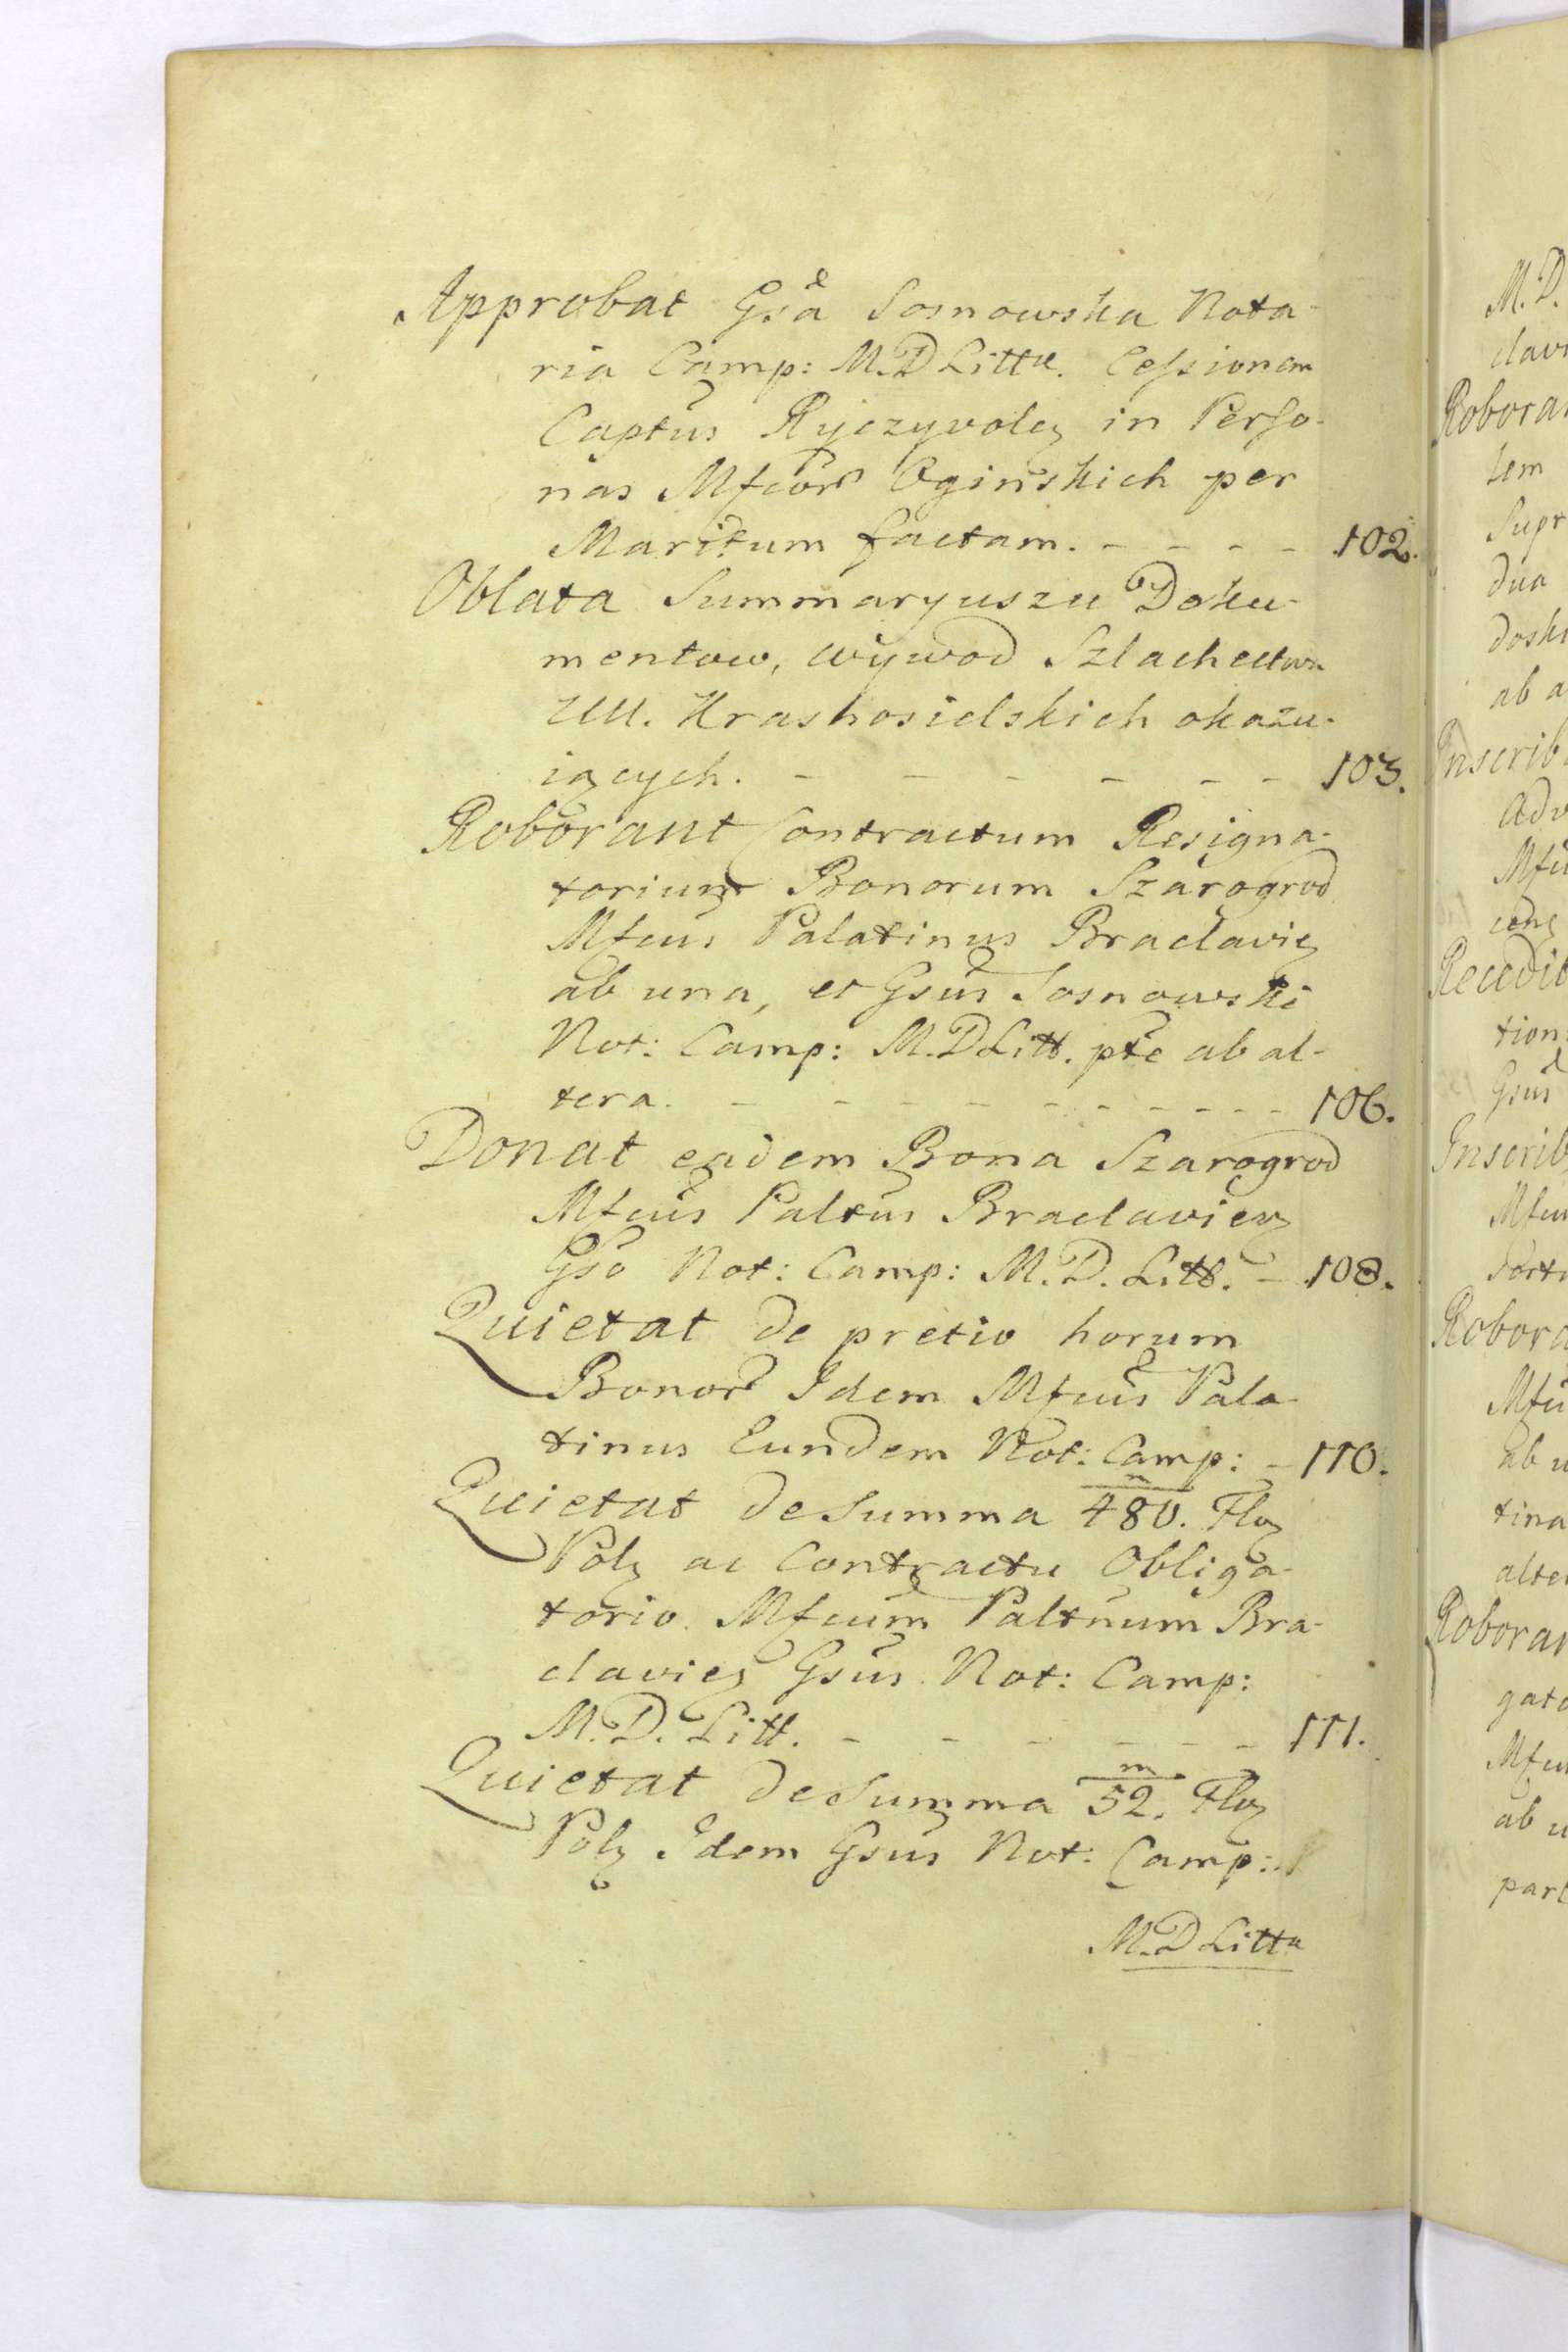 Approbat Gsa Sosnowska Nota-
ria Camp: M.D Littu. Cessionem
Captus Ryczyvolę in Perso-
nas Mfcor Oginskich per
Maritum factam. - - - - 102.
Oblata Summaryuszu Doku-
mentow, wywod Szlachectwa
UU. Kraskosielskich okazu-
iących. - - - - - - 103.
Roborant Contractum Resigna-
torium Bonorum Szarogrod
Mfcus Palatinus Braclavię
ab una, et Gsus Sosnowski
Not: Camp: M.D Litt. pte ab al-
tera. - - - - - - - - - - 106.
Donat eadem Bona Szarogrod
Mfcus Paltus Braclavien
Gso Not: Camp: M.D. Litt. - 108.
Quietat de pretio horum
Bonor Idem Mfcus Pala-
tinus Eundem Not: Camp: - 110.
Quietat de Summa 480. Flo
Pol ac Contractu Obliga-
torio Mfcum Paltnum Bra-
clavię Gsus Not: Camp:
M.D. Litt. - - - - - - 111.
Quietat de Summa 52. Flo
Pol Idem Gsus Not: Camp:
M.D Littu
M.D.
clavi
Roboran
tem
Supr
dua
doski
ab a
Inscrib
Adv
Mfcu
Recedit
tion
Gsus
Inscrib
Mfcu
Robora
Mfcu
ab u
tina
alter
Roboran
gato
Mfcu
ab u
part